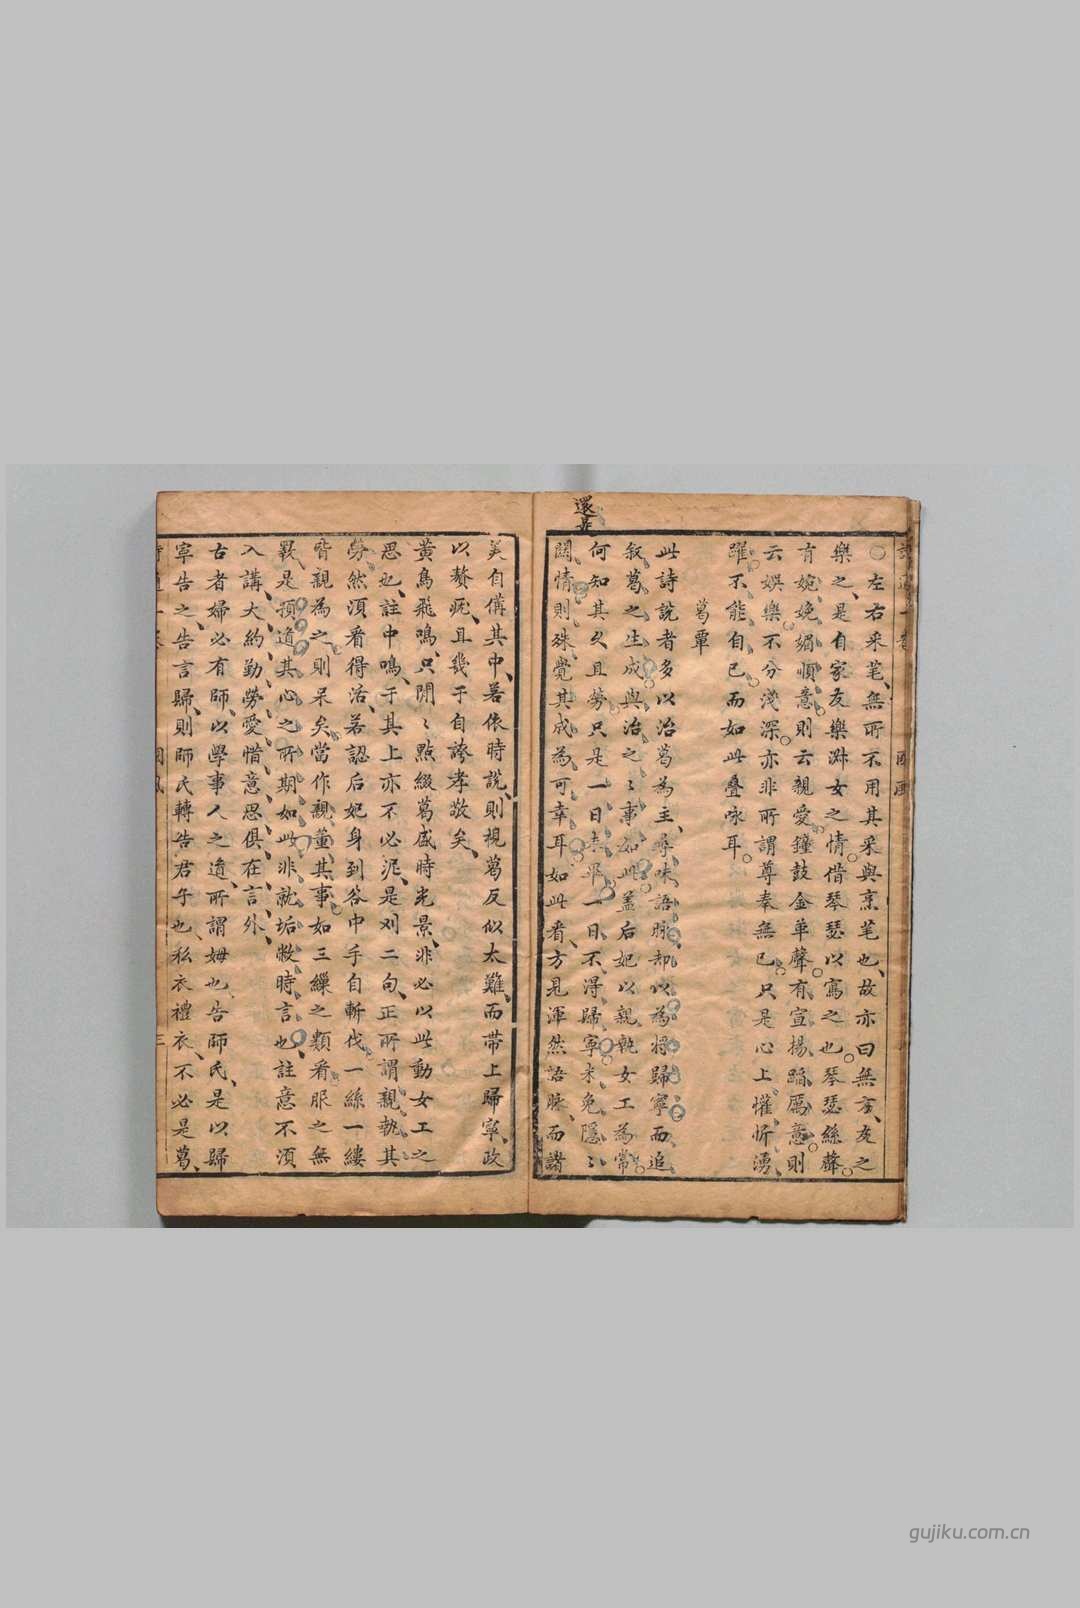 還是
○左右采芼無所不用其采與烹芼也故亦曰無方友之
樂之是自家友樂淑女之情借琴瑟以寫之也琴瑟絲聲
有婉娩媚順意則云親愛鐘鼓金革聲有宣揚蹈厲意則
云娛樂不分淺深亦非所謂尊奉無已只是心上懽忻湧
躍不能自已而如此疊咏耳
葛覃
此詩說者多以治葛為主尋味語脉却以為將歸寧而追
叙葛之生成與治之〻事如此盖后妃以親執女工為常
何知其久且勞只是一日未畢一日不淂歸寧未免隱〻
関情則殊覺其成為可幸耳如此看方見渾然語脉而諸
美自備其中若依時說則視葛反似太難而帶上歸寧政
以贅疣且幾于自誇孝敬矣
黃鳥飛鳴只閒〻點綴葛盛時光景非必以此動女工之
思也註中鳴于其上亦不必泥是刈二句正所謂親執其
勞然湏看得活若認后妃身到谷中手自斬伐一絲一縷
皆親為之則呆矣當作親董其事如三繅之類看服之無
斁是預道其心之所期如此非就垢敝時言也註意不湏
入講大約勤勞愛惜意思俱在言外
古者婦必有師以學事人之道所謂姆也告師氏是以歸
寧告之告言歸則師氏轉告君子也私衣禮衣不必是葛
國風
三